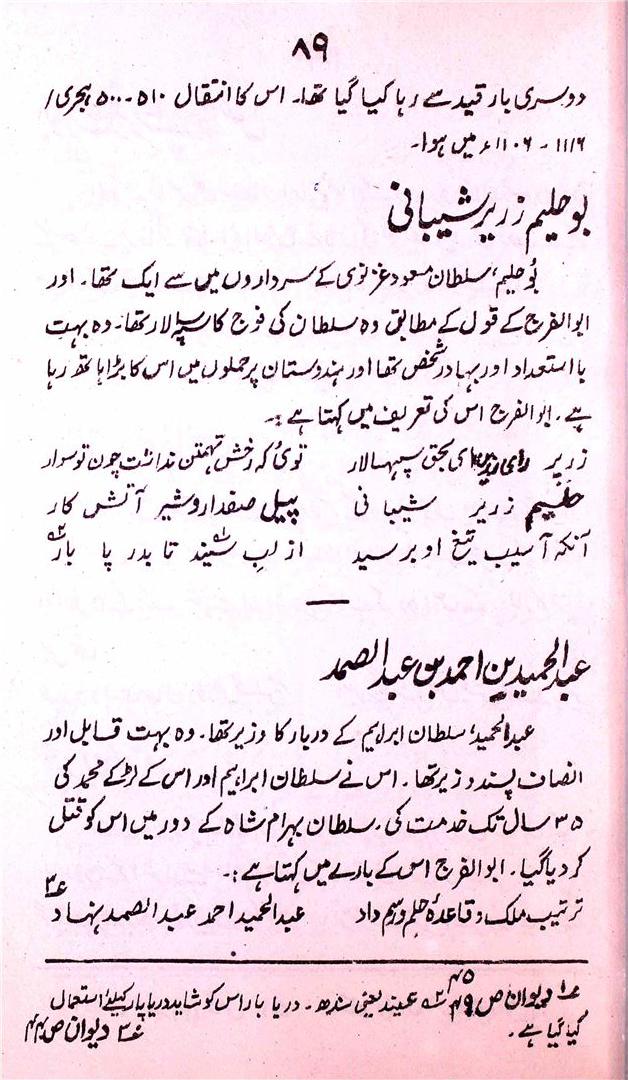 ۸۹
دوسری بار قید سے رہا کیا گیا تھا۔ اس کا انتقال ۵۱۰-۵۰۰ ہجری/
۱۱۱۶-۱۱۰۶ء میں ہوا۔
بوحلیم زریر شیبانی
بُوحلیم، سلطان مسعود غزنوی کے سرداروں میں سے ایک تھا۔ اور
ابوالفرج کے قول کے مطابق وہ سلطان کی فوج کا سپہ سالار تھا۔ وہ بہت
با استعداد اور بہادر شخص تھا اور ہندوستان پر حملوں میں اس کا بڑا ہاتھ رہا
ہے۔ ابوالفرج اس کی تعریف میں کہتا ہے:۔
زریر ای بحق سپہسالار توئی کہ رخش تہمتن نداشت چون تو سوار
حلیم زریر شیبانی پیل صفدار و شیر آتش کار
آنکہ آسیب تیغ او برسید از لبِ سیند تا بدر پا بار
عبدالحمید بن احمد بن عبدالصمد
عبدالحمید، سلطان ابراہیم کے دربار کا وزیر تھا۔ وہ بہت قابل اور
انصاف پسند وزیر تھا۔ اس نے سلطان ابراہیم اور اس کے لڑکے محمد کی
۳۵ سال تک خدمت کی۔ سلطان بہرام شاہ کے دور میں اس کو قتل
کر دیا گیا۔ ابوالفرج اس کے بارے میں کہتا ہے:۔
ترتیب ملک و قاعدۂ حلم و رسم داد عبدالحمید احمد عبدالصمد نہاد ؏۳
؏۱ دیوان ص ۴۹ ؏۲ سیند یعنی سندھ۔ دریا بار اس کو شاید دریا پار کیلئے استعمال
کیا گیا ہے۔ ؏۳ دیوان ص ۴۴